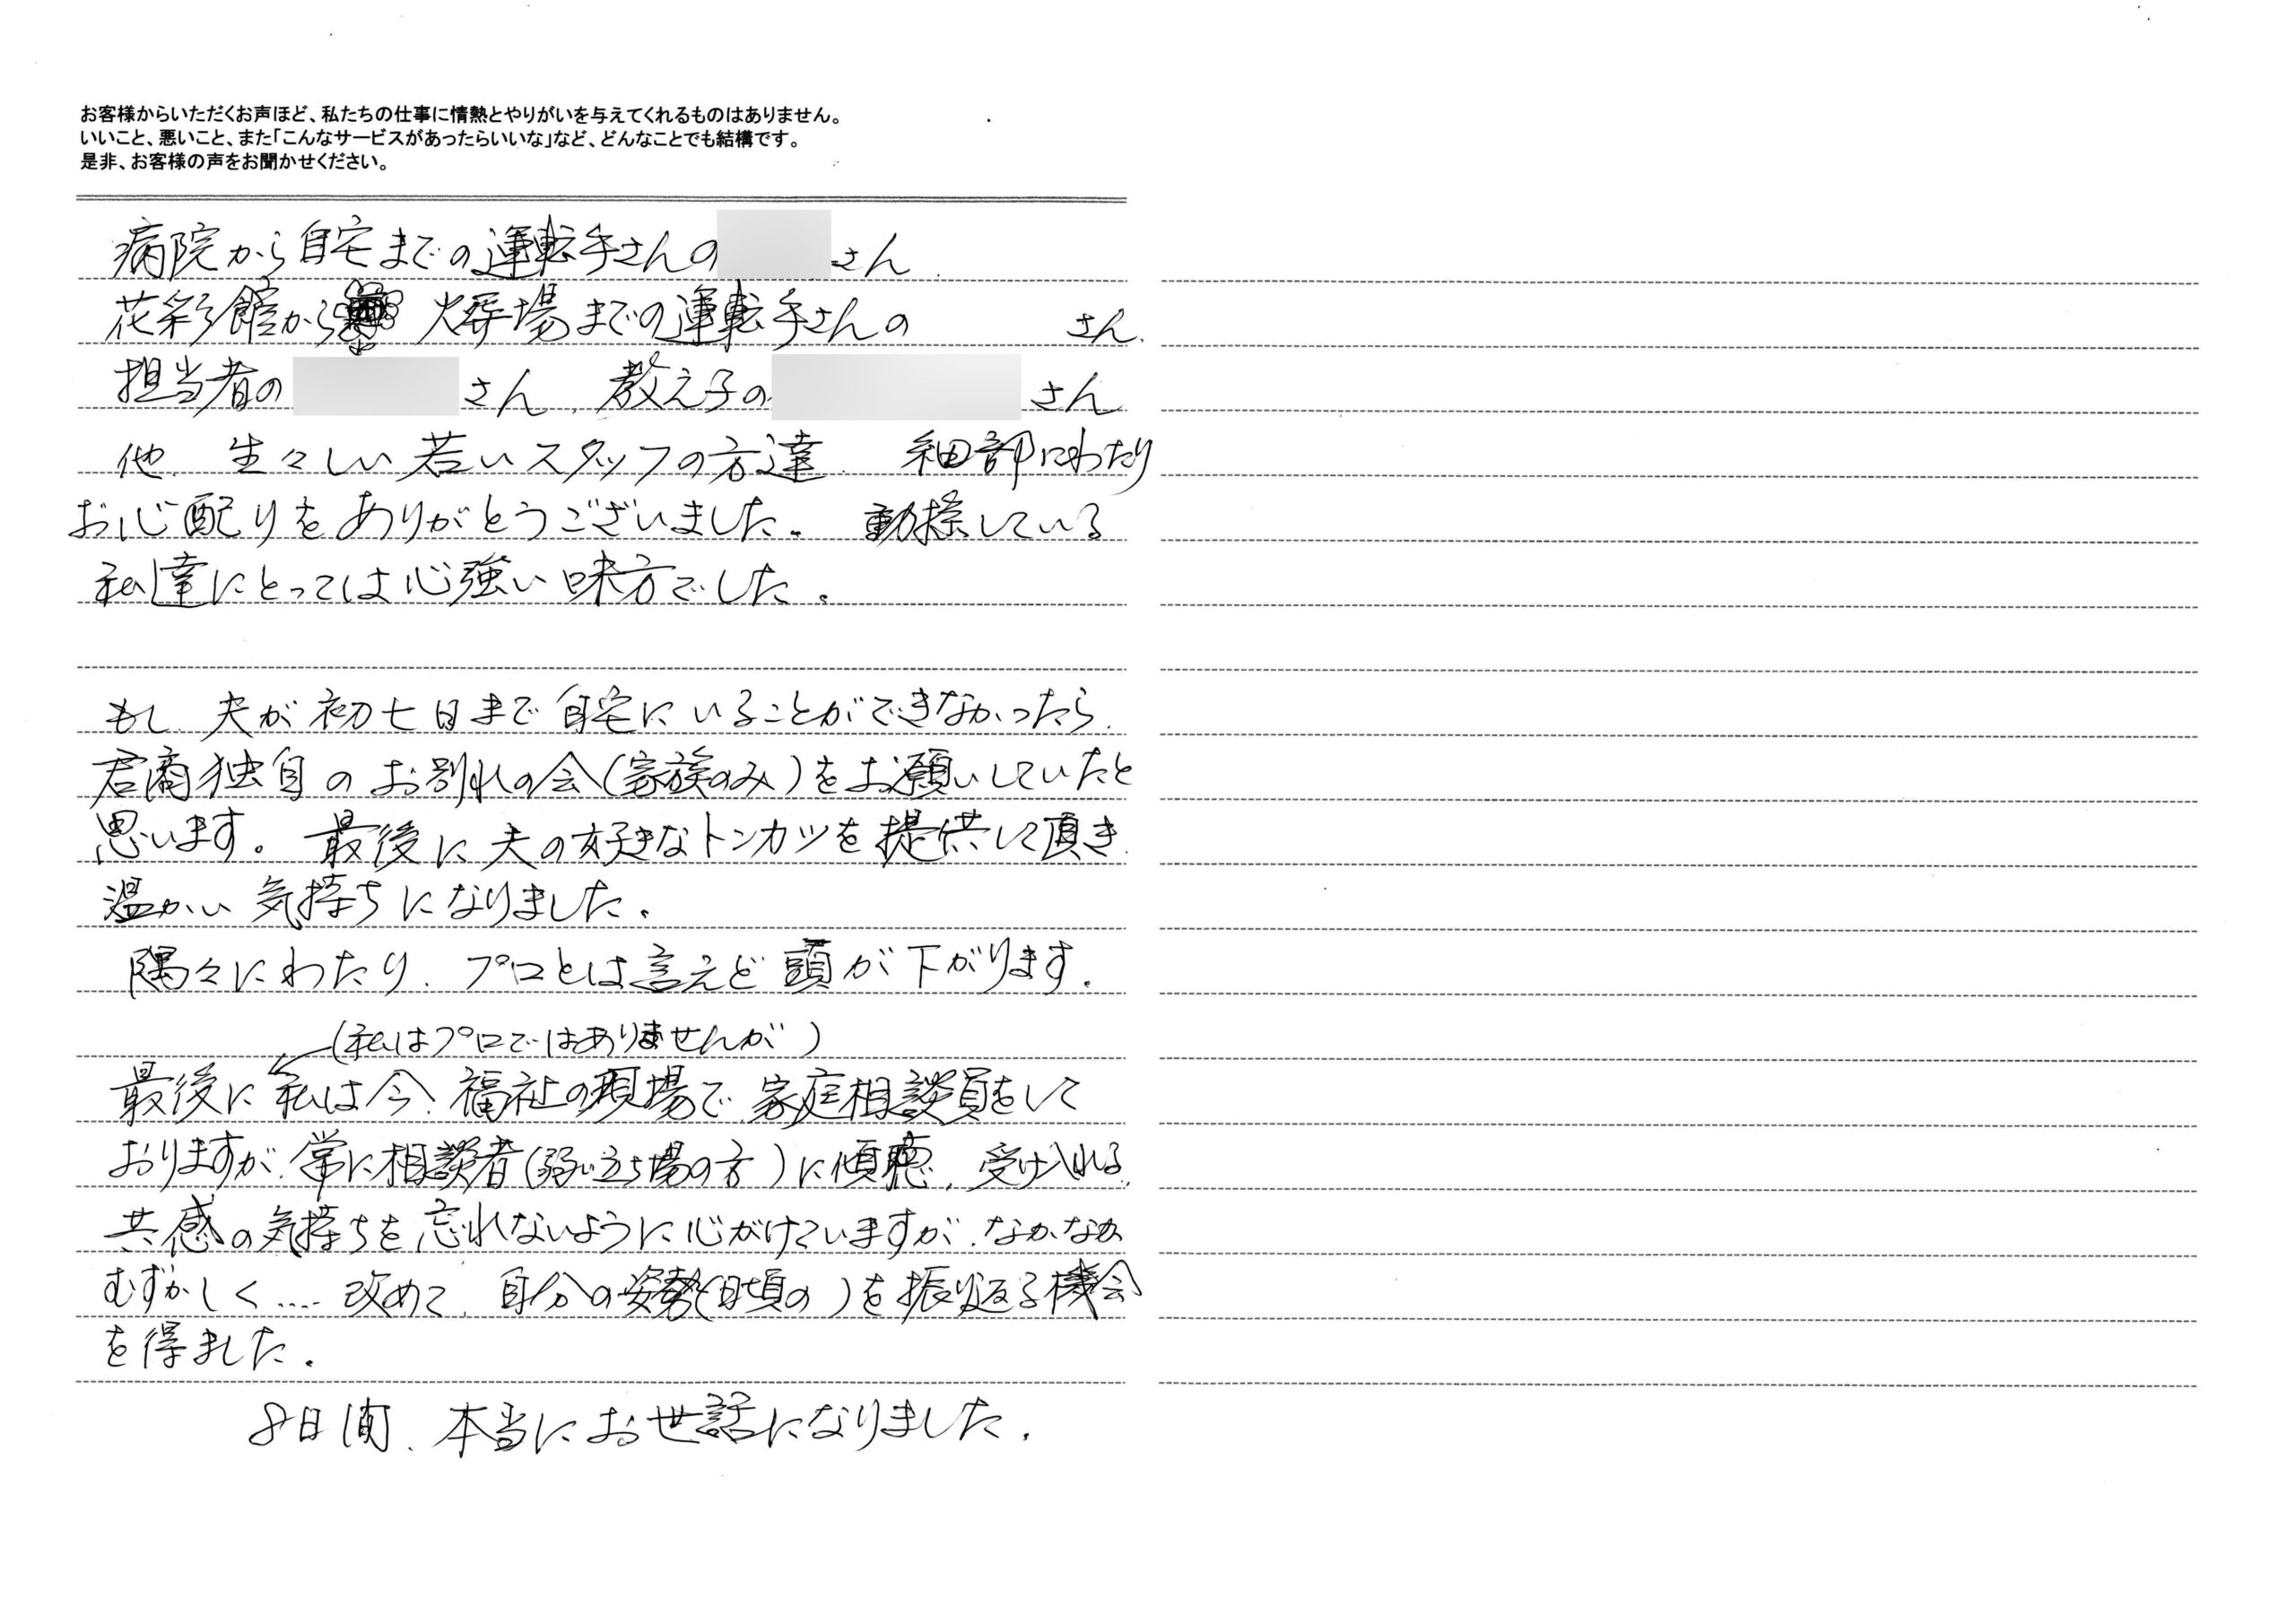 お客様からいただくお声ほど、私たちの仕事に情熱とやりがいを与えてくれるものはありません。
いいこと、悪いこと、また「こんなサービスがあったらいいな」など、どんなことでも結構です。
是非、お客様の声をお聞かせください。
病院から自宅までの運転手さんの さん
花彩館から 火葬場までの運転手さんの さん、
担当者の さん、教え子の さん
他、生々しい若いスタッフの方達、細部にわたり
お心配りをありがとうございました。動揺している
私達にとっては心強い味方でした。
もし、夫が初七日まで自宅にいることができなかったら、
君商独自のお別れの会(家族のみ)をお願いしていたと
思います。最後に夫の好きなトンカツを提供して頂き
温かい気持ちになりました。
隅々にわたり、プロとは言えど頭が下がります。
(私はプロではありませんが)
最後に私は今、福祉の現場で、家庭相談員をして
おりますが、常に相談者(弱い立ち場の方)に傾聴、受け入れる、
共感の気持ちを忘れないように心がけていますが、なかなか
むずかしく…. 改めて、自分の姿勢(日頃の)を振り返る機会
を得ました。
8日間、本当にお世話になりました。